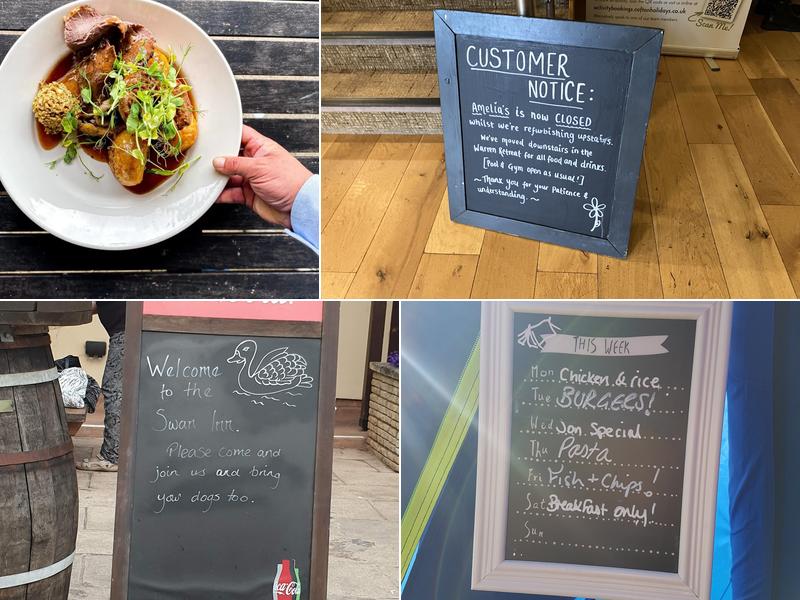 activitybookings.coffonholidays.co.uk
Scan Me!
CUSTOMER
NOTICE:
Amelia's is now CLOSED
whilst we're refurbishing upstairs.
We've moved downstairs in the
Warren Retreat for all food and drinks.
[Pool & Gym open as usual!]
~ Thank you for your Patience &
understanding. ~
Welcome
to the
Swan Inn.
Please come and
join us and bring
your dogs too.
THIS WEEK
Mon Chicken & rice
Tue BURGERS!
Wed Jon Special
Thu Pasta
Fri Fish + Chips!
Sat Breakfast only!
Sun